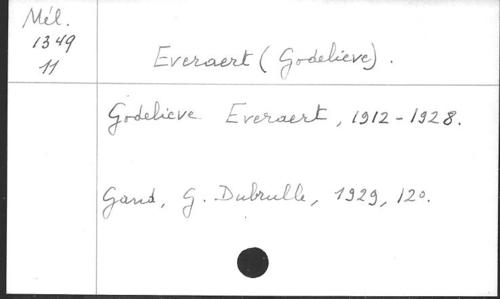 Mél.
1349
11
Everaert (Godelieve).
Godelieve Everaert, 1912-1928.
Gand, G. Dubrulle, 1929, 12o.